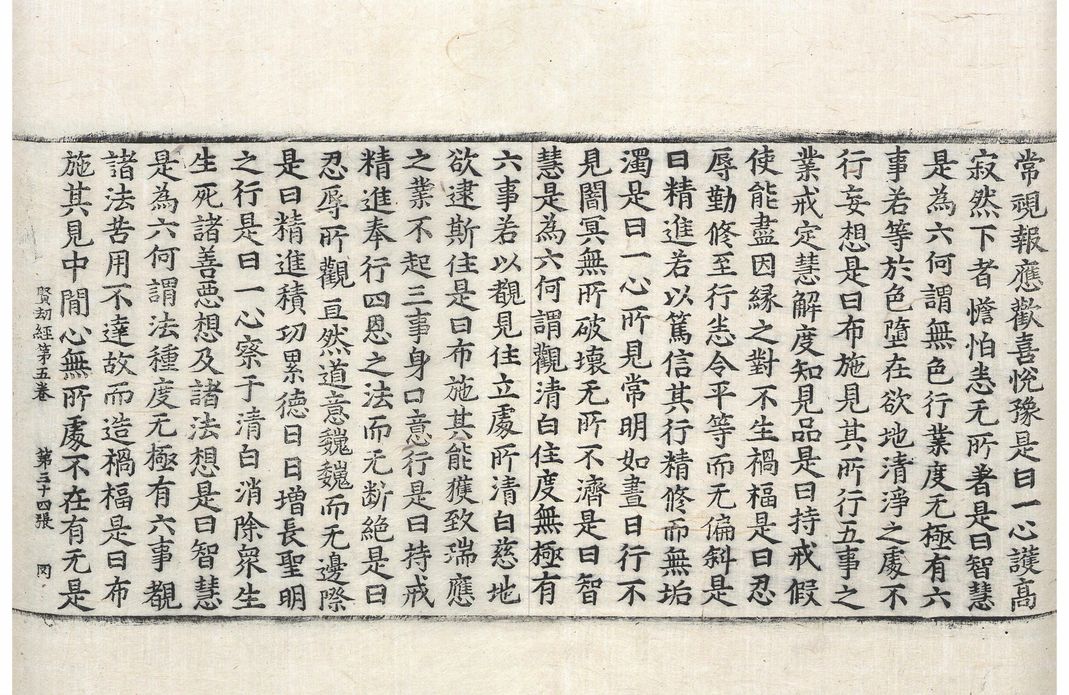 常視報應歡喜悅豫是曰一心護高
寂然下者憺怕恚无所者是曰智慧
是為六何謂無色行業度无極有六
事若等於色墮在欲地清淨之處不
行妄想是曰布施見其所行五事之
業戒定慧解度知見品是曰持戒假
使能盡因緣之對不生禍福是曰忍
辱勤修至行恚令平等而无偏斜是
曰精進若以篤信其行精修而無垢
濁是曰一心所見常明如晝日行不
見闇冥無所破壞无所不濟是曰智
慧是為六何謂觀清白住度無極有
六事若以覩見住立處所清白慈地
欲逮斯住是曰布施其能獲致瑞應
之業不起三事身口意行是曰持戒
精進奉行四恩之法而无断絕是曰
忍辱所觀亘然道意巍巍而无邊際
是曰精進積功累德日日增長聖明
之行是曰一心察于清白消除衆生
生死諸善惡想及諸法想是曰智慧
是為六何謂法種度无極有六事覩
諸法苦用不達故而造禍福是曰布
施其見中閒心無所處不在有无是
賢劫經第五卷 第三十四張 罔